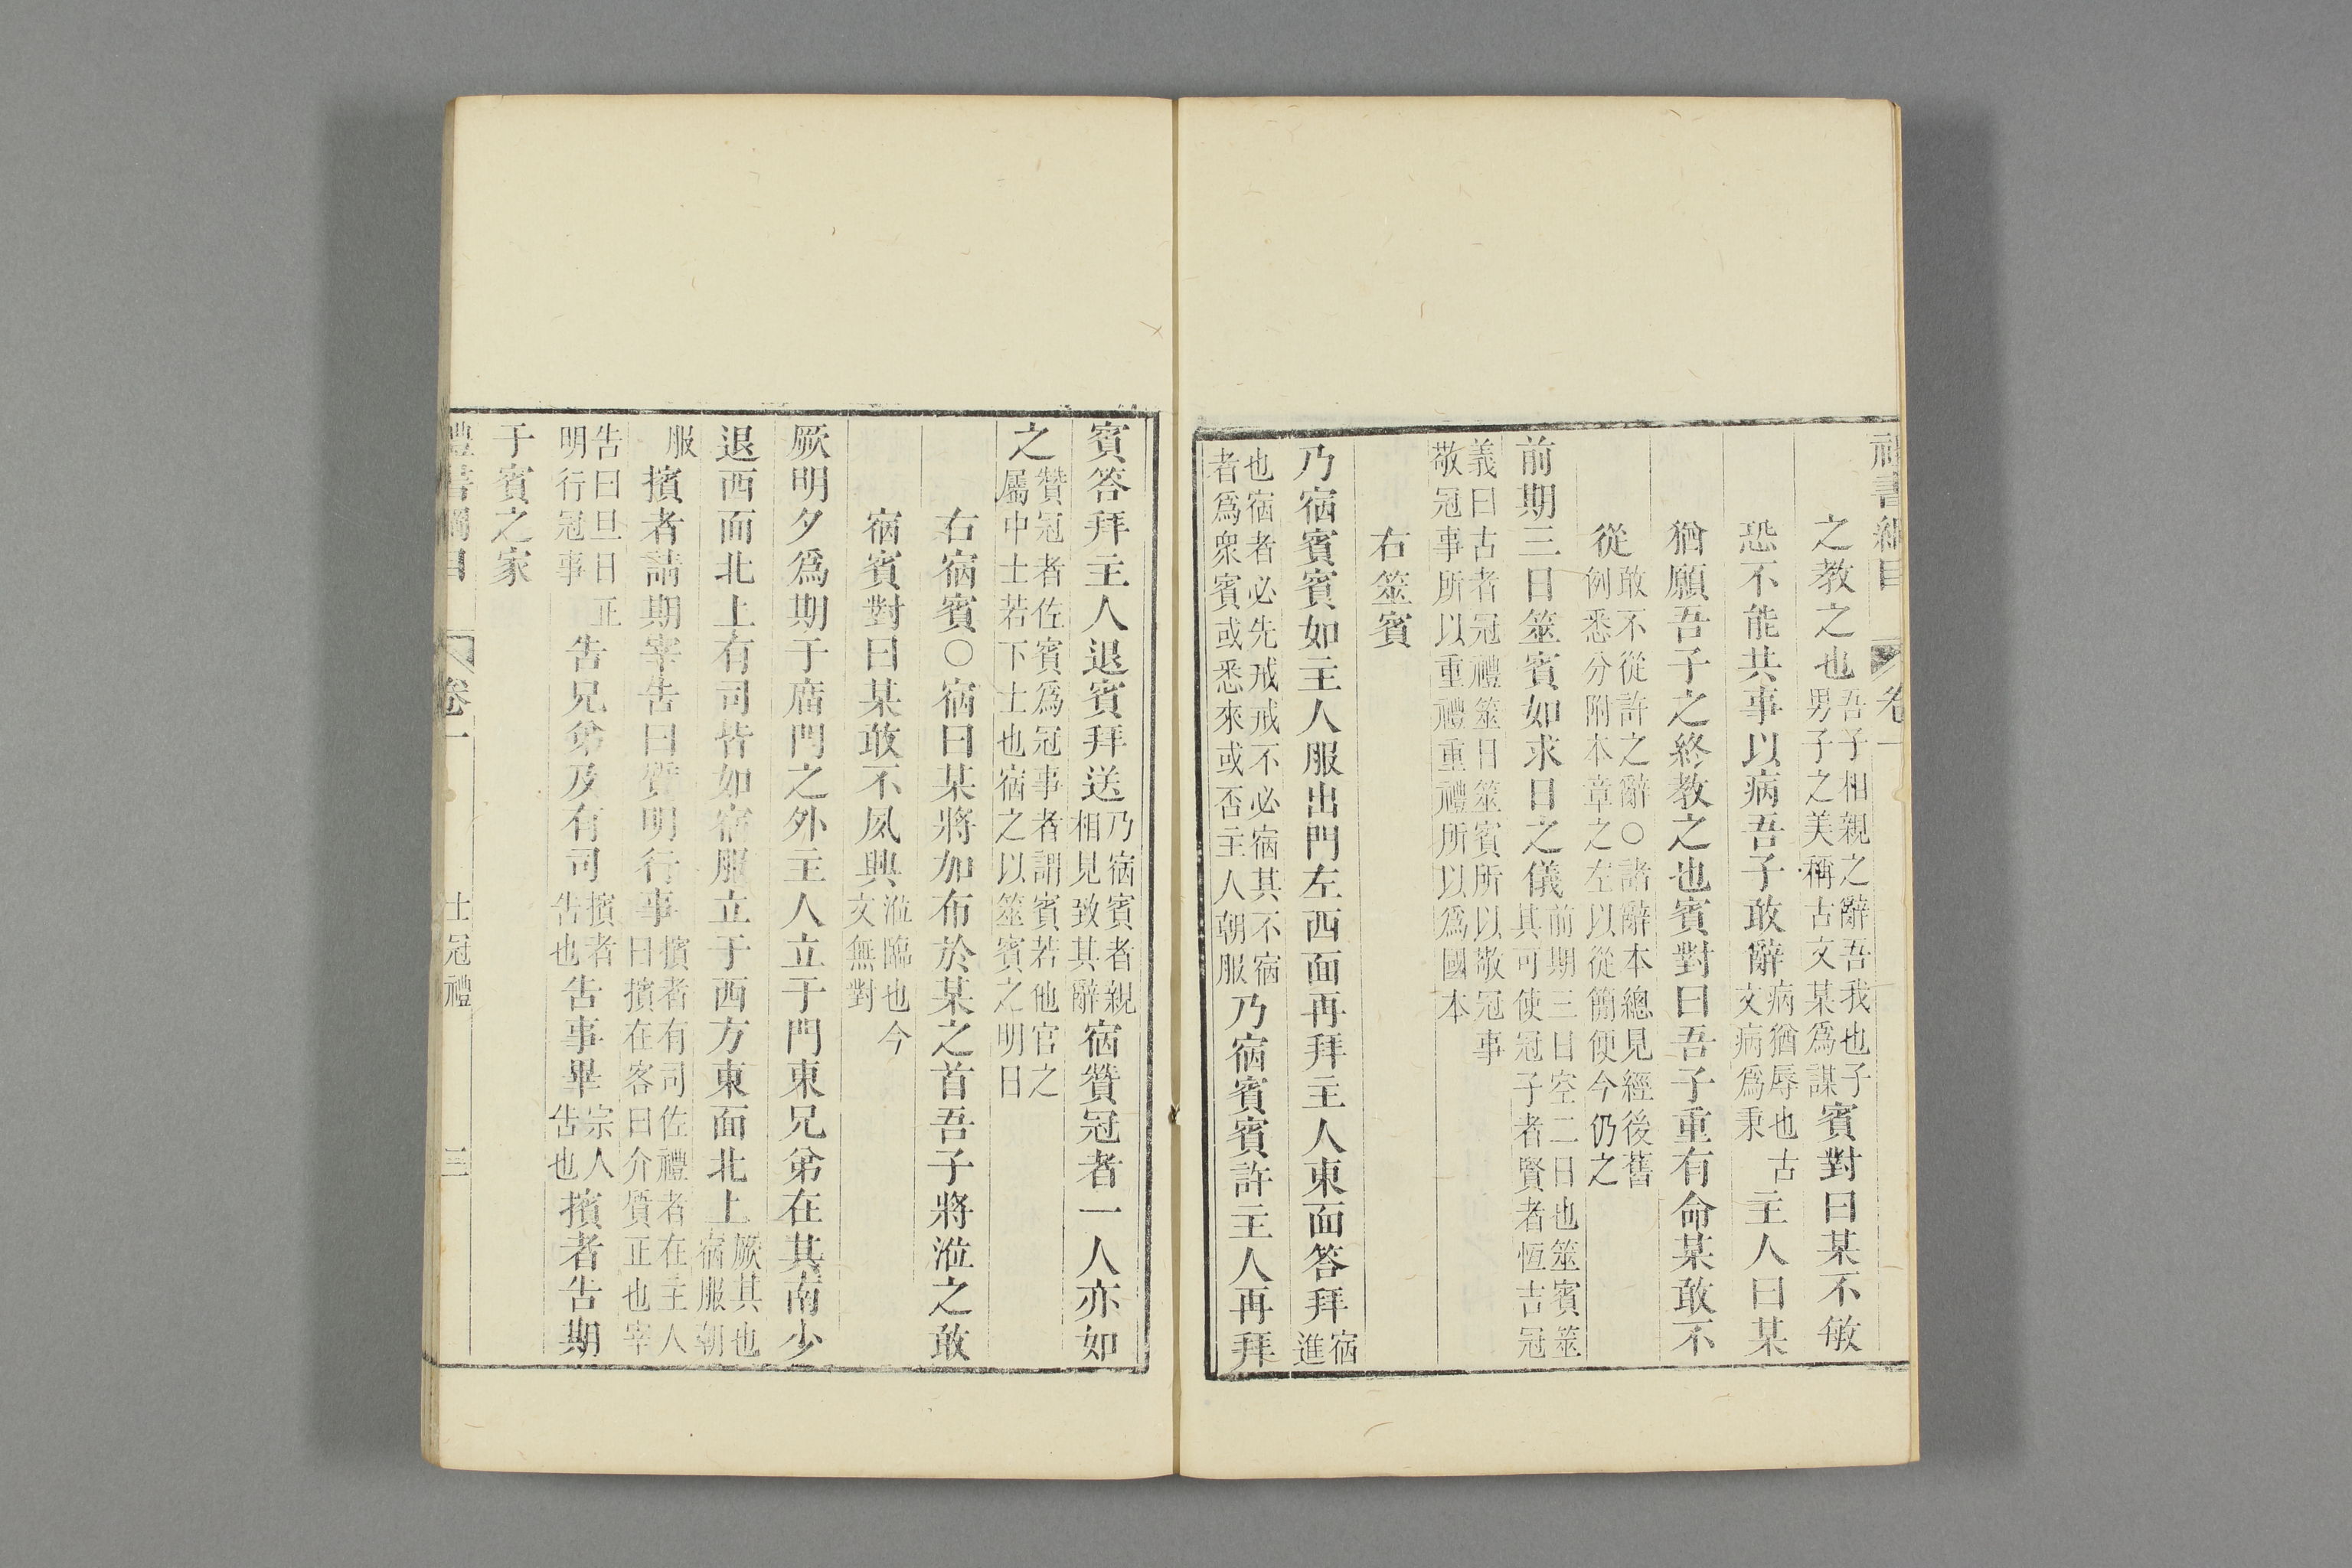 禮書綱目 卷一
之教之也吾子相親之辭吾我也子男子之美稱古文某爲謀賓對曰某不敏
恐不能共事以病吾子敢辭病猶辱也古文病爲秉主人曰某
猶願吾子之終教之也賓對曰吾子重有命某敢不
從敢不從許之辭○諸辭本總見經後舊例悉分附本章之左以從簡便今仍之
前期三日筮賓如求日之儀前期三日空二日也筮賓筮其可使冠子者賢者恆吉冠
義曰古者冠禮筮日筮賓所以敬冠事敬冠事所以重禮重禮所以爲國本
右筮賓
乃宿賓賓如主人服出門左西面再拜主人東面答拜宿進
也宿者必先戒戒不必宿其不宿者爲衆賓或悉來或否主人朝服乃宿賓賓許主人再拜
賓答拜主人退賓拜送乃宿賓者親相見致其辭宿贊冠者一人亦如
之贊冠者佐賓爲冠事者謂賓若他官之屬中士若下士也宿之以筮賓之明日
右宿賓○宿曰某將加布於某之首吾子將涖之敢
宿賓對曰某敢不夙興涖臨也今文無對
厥明夕爲期于廟門之外主人立于門東兄弟在其南少
退西面北上有司皆如宿服立于西方東面北上厥其也宿服朝
服擯者請期宰告曰質明行事擯者有司佐禮者在主人曰擯在客曰介質正也宰
告曰旦日正明行冠事告兄弟及有司擯者告也告事畢宗人告也擯者告期
于賓之家
禮書綱目 卷一 士冠禮 三